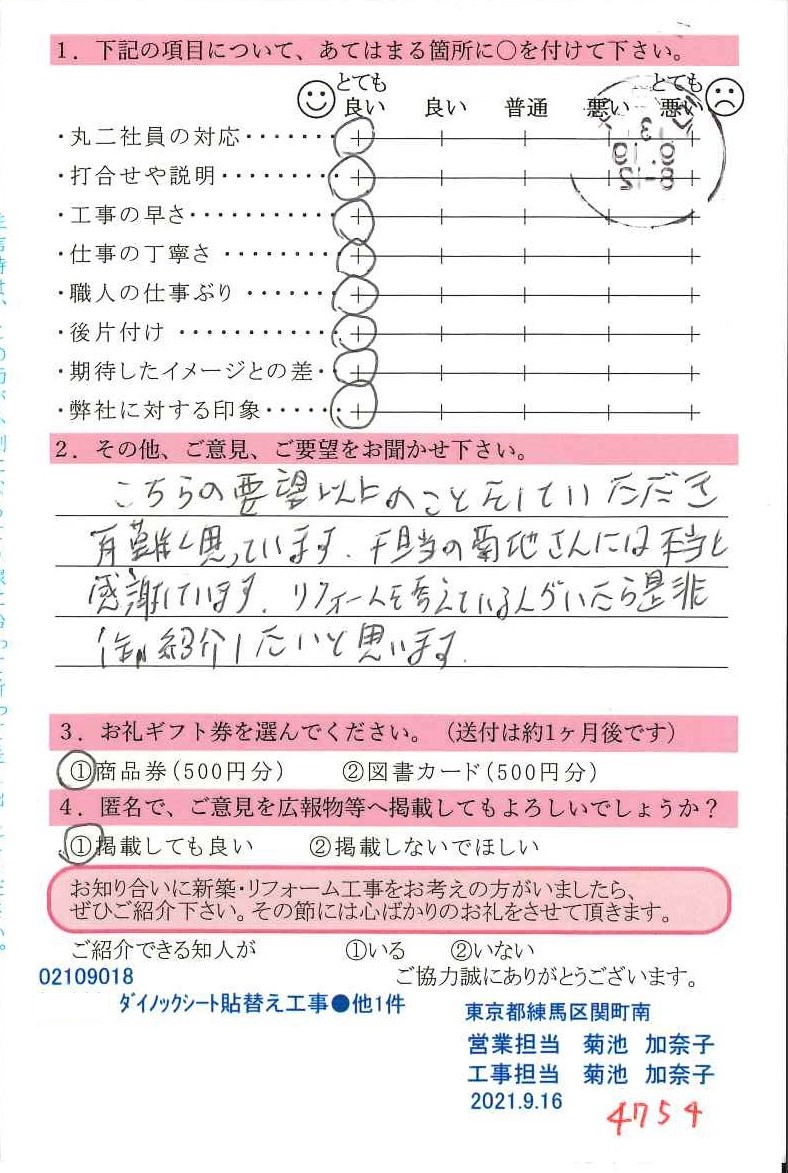 1．下記の項目について、あてはまる箇所に○を付けて下さい。
とても良い 良い 普通 悪い とても悪い
・丸二社員の対応・・・・・・・
・打合せや説明・・・・・・・・
・工事の早さ・・・・・・・・・・
・仕事の丁寧さ ・・・・・・・・
・職人の仕事ぶり ・・・・・・・
・後片付け ・・・・・・・・・・・
・期待したイメージとの差・・
・弊社に対する印象・・・・・・
2．その他、ご意見、ご要望をお聞かせ下さい。
こちらの要望以上のことをしていただき
有難く思っています。担当の菊地さんには本当に
感謝しています。リフォームを考えている人がいたら是非
御紹介したいと思います。
3．お礼ギフト券を選んでください。（送付は約1ヶ月後です）
①商品券（500円分） ②図書カード（500円分）
4．匿名で、ご意見を広報物等へ掲載してもよろしいでしょうか？
①掲載しても良い ②掲載しないでほしい
お知り合いに新築・リフォーム工事をお考えの方がいましたら、
ぜひご紹介下さい。その節には心ばかりのお礼をさせて頂きます。
ご紹介できる知人が ①いる ②いない
02109018
ご協力誠にありがとうございます。
ﾀﾞｲﾉｯｸｼｰﾄ貼替え工事●他1件
東京都練馬区関町南
営業担当 菊池 加奈子
工事担当 菊池 加奈子
2021.9.16
4754